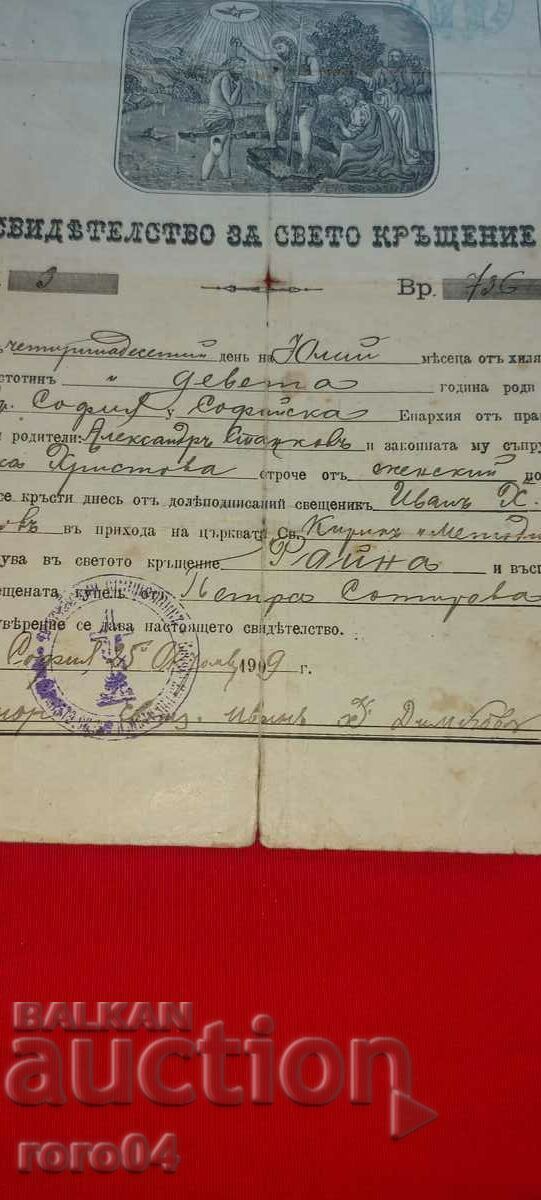 СВИДѢТЕЛСТВО ЗА СВЕТО КРЪЩЕНИЕ
3 Вр. 736
четиринадесетий день на Юлий мѣсеца отъ хиля
стотин „ девета година роди
гр. София у Софийска Епархия отъ пра
и родители: Александръ и законната му съпру
ка Христова строче отъ женский по
се кръсти днесь отъ долѣподписаний свещеникъ Иванъ Х.
овъ въ прихода на църквата Св. Кирилъ и Методи
ува въ светото кръщение Райна и въсп
ещената купель отъ Петра Сотирова
увѣрение се дава настоящето свидѣтелство.
София 25 1909 г.
Иванъ Х Димковъ
BALKAN
auction
roro04